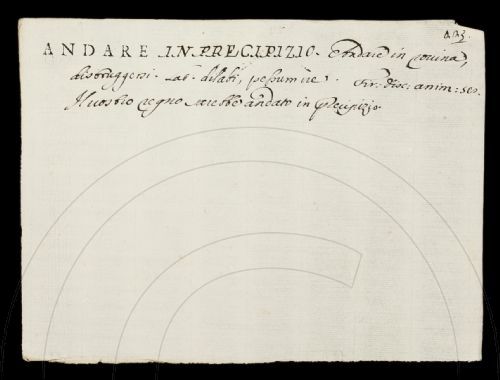 ANDARE IN PRECIPIZIO. Andare in rovina,
distruggersi. Lat. dilabi, pessum ire. Fir: disc: anim:
Il vostro regno sarebbe andato in precipizio